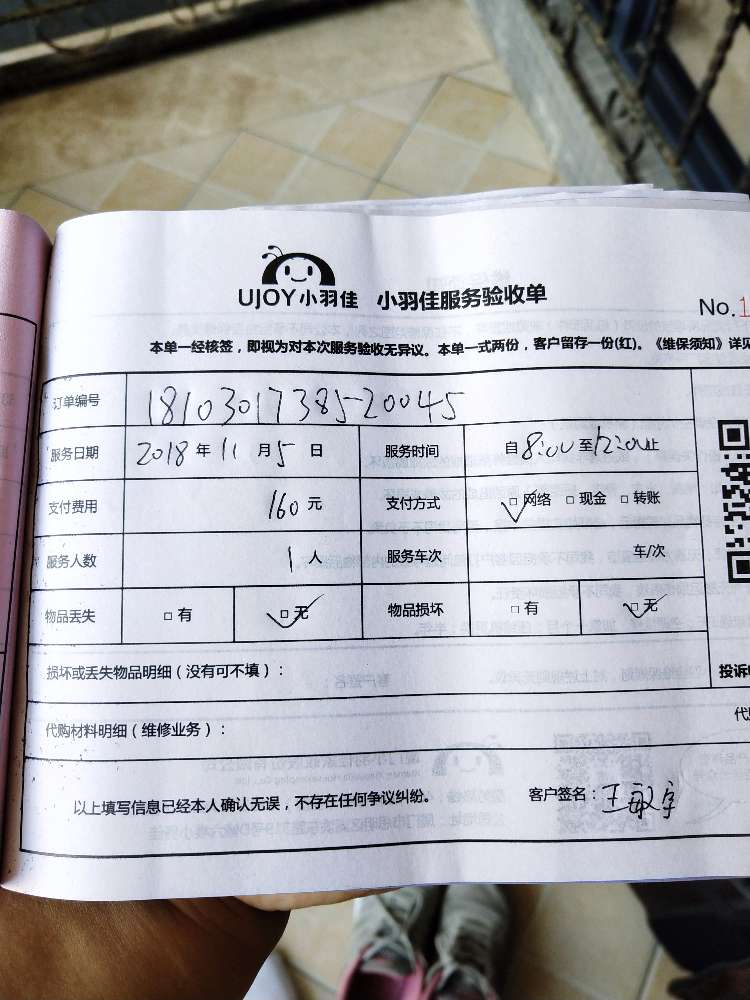 UJOY小羽佳 小羽佳服务验收单
No.1
本单一经核签，即视为对本次服务验收无异议。本单一式两份，客户留存一份(红)。《维保须知》详见
订单编号 18103017385-20045
服务日期 2018年11月5日 服务时间 自8:00至12:00止
支付费用 160元 支付方式 □网络 □现金 □转账
服务人数 1人 服务车次 车/次
物品丢失 □有 □无 物品损坏 □有 □无
损坏或丢失物品明细（没有可不填）：
投诉
代购材料明细（维修业务）：
以上填写信息已经本人确认无误，不存在任何争议纠纷。 客户签名：王敏